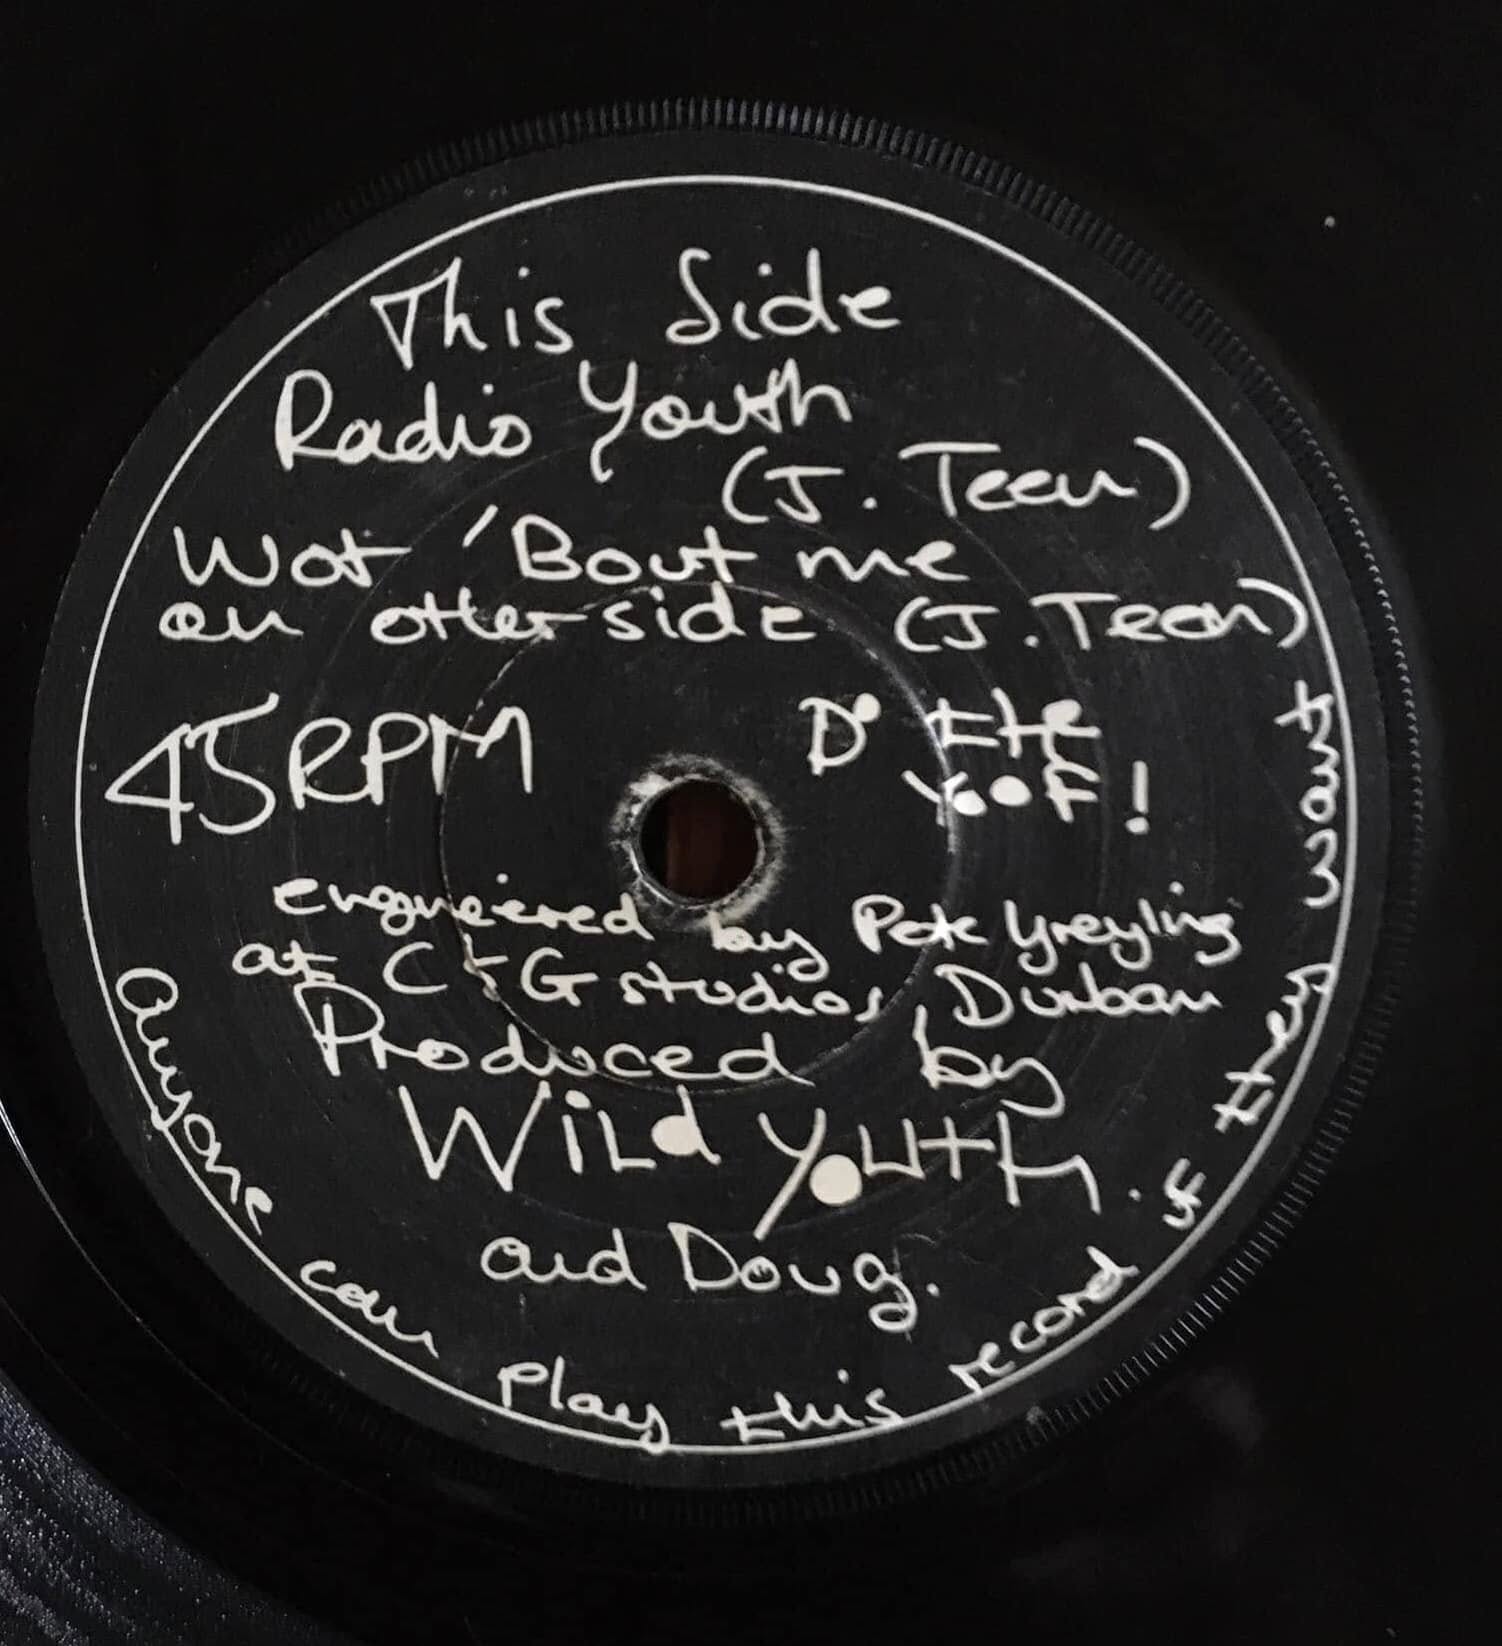 This Side
Radio Youth
(J. Teen)
Wot 'Bout me
on otherside (J. Teen)
45 RPM
Do the
yoff!
engineered by Pete Greyling
at C & G studios, Durban
Produced by
Wild Youth.
and Doug.
Anyone can play this record if they want